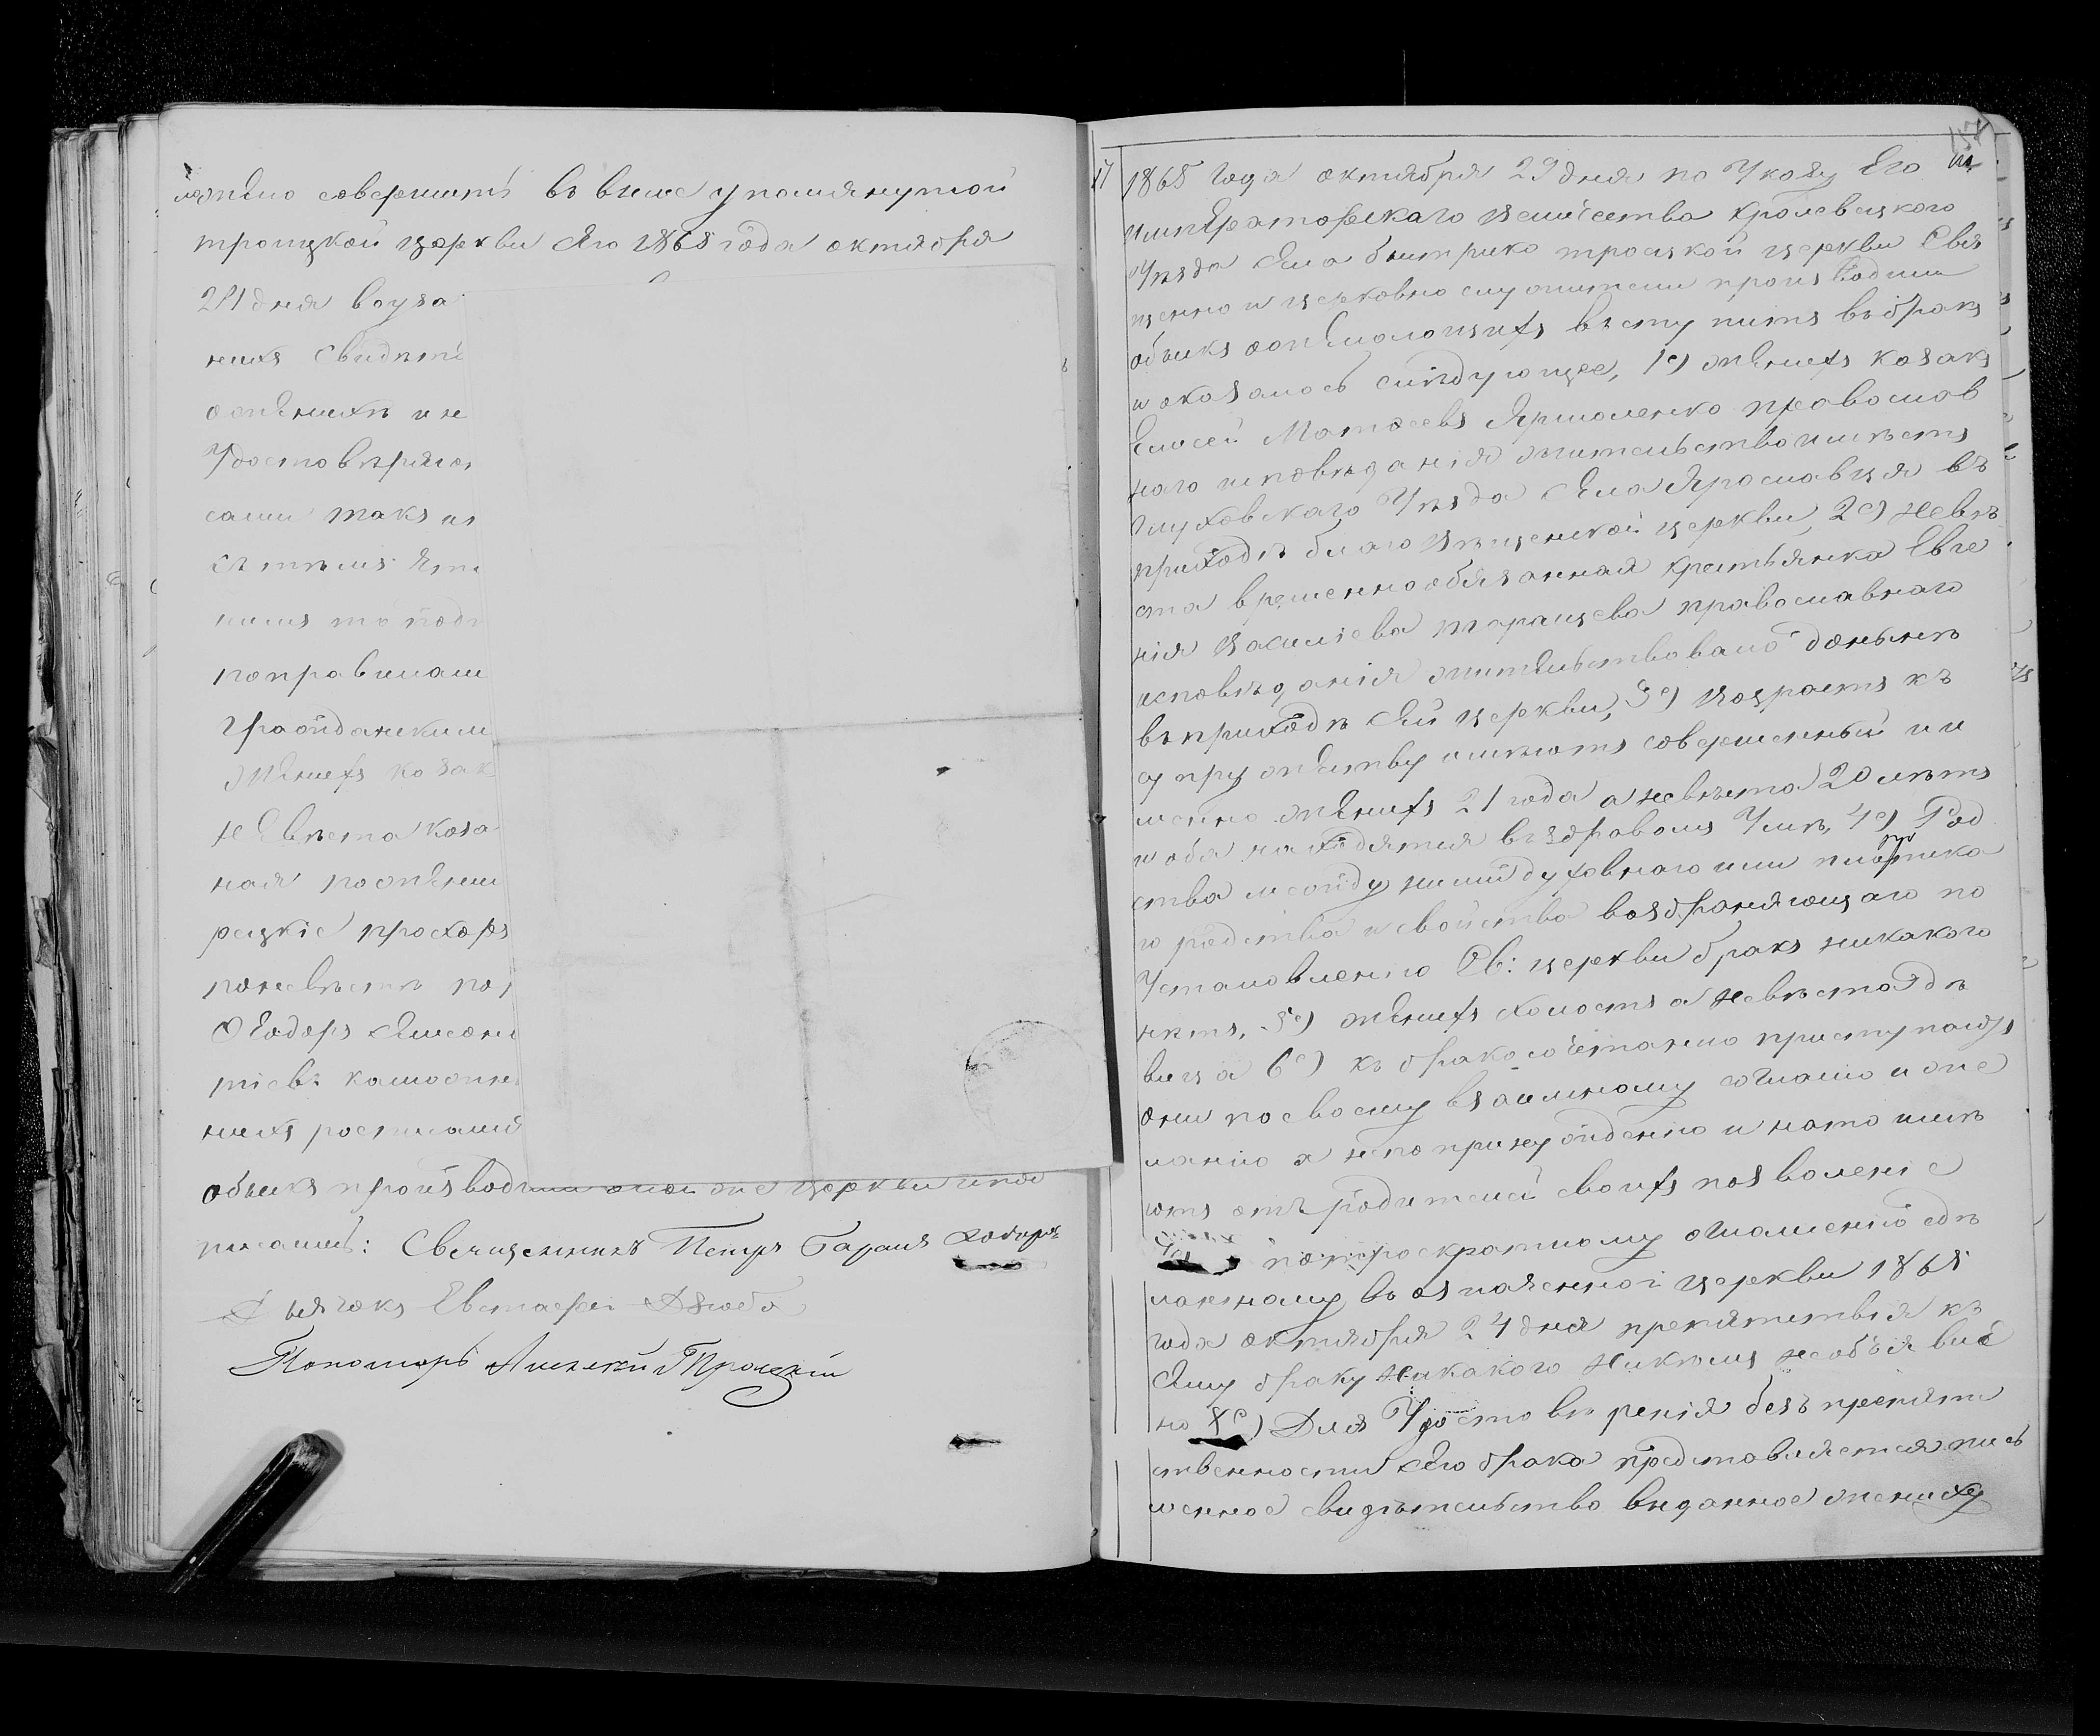 совершить въ више упомянутой
троицкой церкви сего 1868 года октября
21 дня воуза
нихъ свидѣтѣ
ожѣнихѣ и не
Удостовѣряю
сами такъ и
съ тѣмъ
поправилам
граждански
жѣнихъ козак
нѣвѣста коза
ная пожѣни
рецкіе прохоръ
поневѣстѣ по
Феодоръ Симеон
ниихъ росписали
обыскъ производили
писали: Свещенникъ Петръ
Дьячокъ Евстафеи Дзюба
Пономарь Алексѣй Троицкій
17
1868 года октября 29 дня по Указу Его
императорскаго величества кролевецкого
Уѣзда села бистрика троецкой церкви Свя
щенно и церковно служители производили
обыскъ ожѣлающихъ вступить въ бракъ
и оказалось слѣдующее, 1е) жѣнихъ козакъ
Елисей Матѳеевъ Ярмоленко православ
наго исповѣданія жительство имѣетъ
глуховскаго Уѣзда села Ярославця въ
приходѣ благовѣщенской церкви, 2е) невѣ
ста временнообязанная крестьянка Евге
нія василіева православнаго
исповѣданія жительствовало донынѣ
въ приходѣ сей церкви, 3е) возрастъ къ
супружѣству имѣютъ совершенный и и
менно жѣнихъ 21 года а невѣста 20 лѣтъ
и оба находятся въ здравомъ Умѣ, 4е) Род
ства между ними духовнаго или плотска
го родства и свойства возбраняющаго по
Установлению Св: церкви бракъ никакого
нѣтъ, 5е) жѣнихъ холостъ а невѣста дѣ
вица 6е) къ бракосочетанию приступаютъ
они по своему взаимному согласию и же
ланию а не по принуждению и на то имѣ
ютъ отъ родителей своихъ позволение
по троекратному оглашению сдѣ
ланному въ означенной церкви 1868
года октября 24 дня препятствія къ
сему браку никакого никѣмъ необъявле
но 8е) Для Удостовѣренія безъ препятс
твенности сего брака представляется пись
менное свидѣтельство виданное жениху